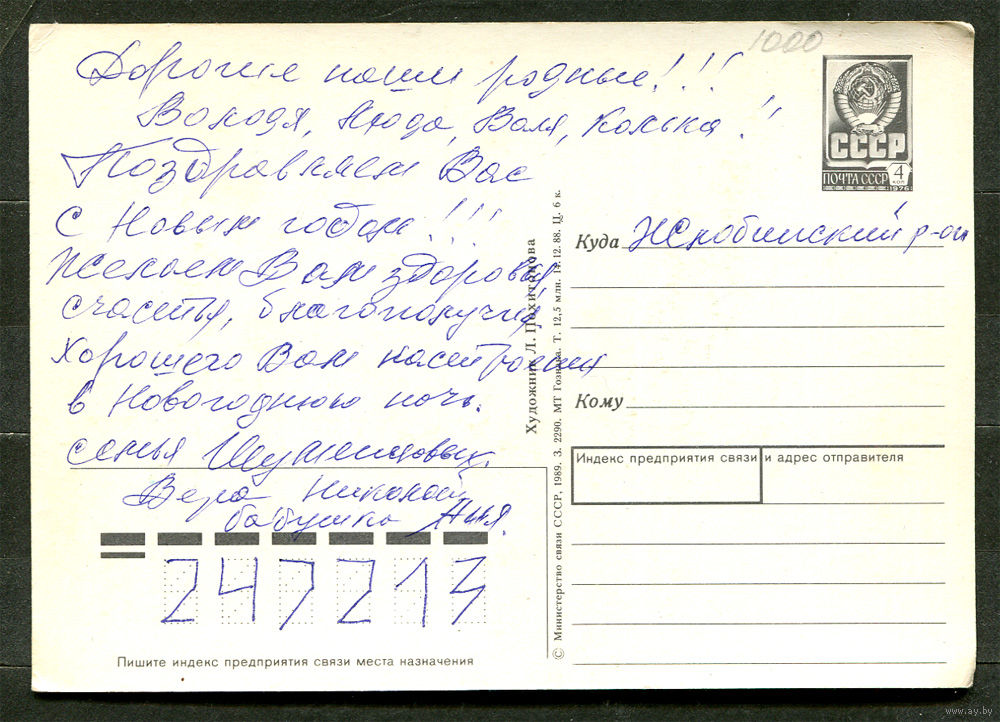 1000
Дорогие наши родные!!!
Володя, Люда, Валя, Колька!!
Поздравляем Вас
С Новым годом!!!
Желаем Вам здоровья,
счастья, благополучия,
хорошего Вам настроения
в Новогоднюю ночь.
семья
Вера Николай
бабушка Аня.
247213
Пишите индекс предприятия связи места назначения
Художник Л. Похитонова
© Министерство связи СССР, 1989. З. 2290. МТ Гознака. Т. 12,5 млн. 14.12.88. Ц. 6 к.
СССР
ПОЧТА СССР 4 КОП
1976
Куда Жлобинский р-он
Кому
Индекс предприятия связи и адрес отправителя
www.ay.by